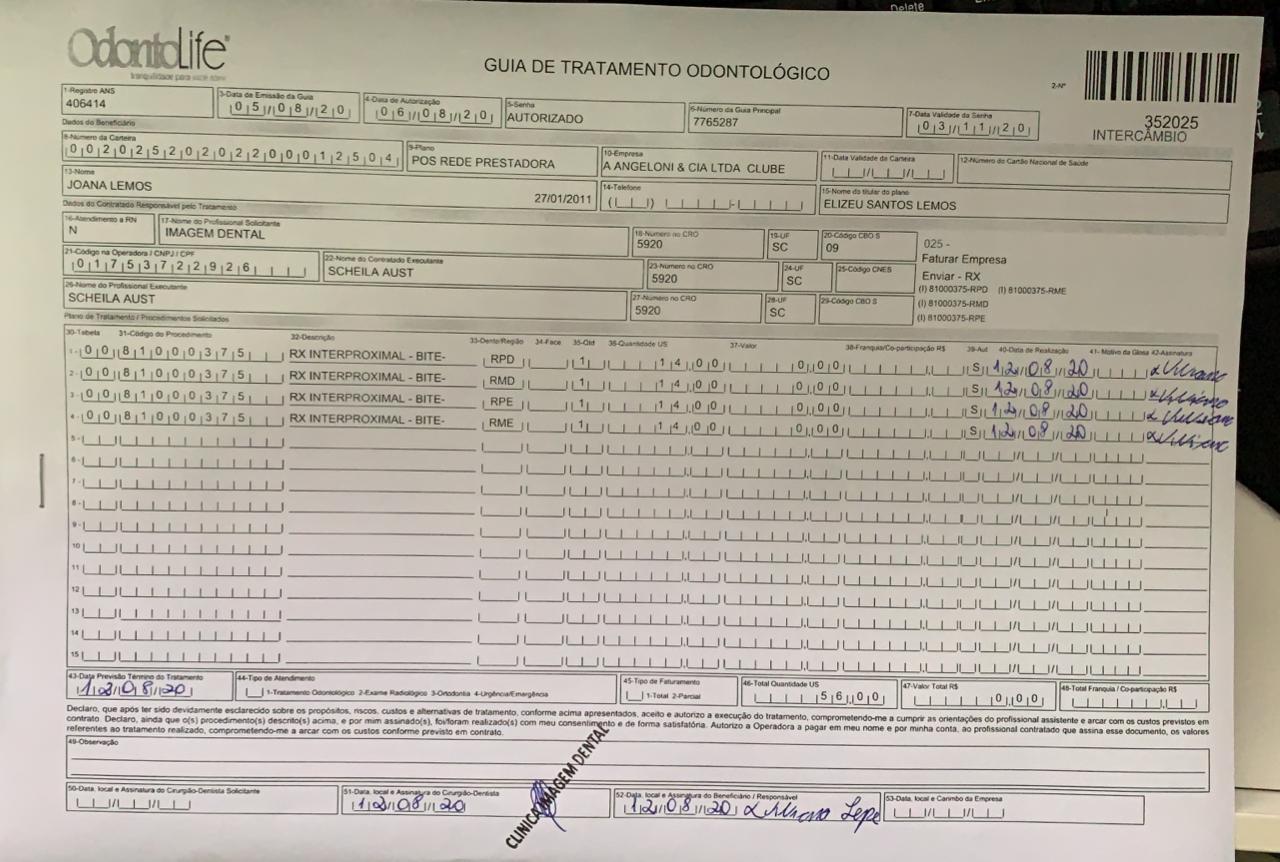 Delete
OdontoLife
tranquilidade para você sorrir
GUIA DE TRATAMENTO ODONTOLÓGICO
2-Nº
352025
INTERCÂMBIO
1-Registro ANS
406414
3-Data de Emissão da Guia
05/08/20
4-Data de Autorização
06/08/20
5-Senha
AUTORIZADO
6-Número da Guia Principal
7765287
7-Data Validade da Senha
03/11/20
Dados do Beneficiário
8-Número da Carteira
00202520220001 2504
9-Plano
POS REDE PRESTADORA
10-Empresa
A ANGELONI & CIA LTDA CLUBE
11-Data Validade da Carteira
12-Número do Cartão Nacional de Saúde
13-Nome
JOANA LEMOS 27/01/2011
14-Telefone
15-Nome do titular do plano
ELIZEU SANTOS LEMOS
Dados do Contratado Responsável pelo Tratamento
16-Atendimento a RN
N
17-Nome do Profissional Solicitante
IMAGEM DENTAL
18-Número no CRO
5920
19-UF
SC
20-Código CBO S
09
025 -
Faturar Empresa
Enviar - RX
(I) 81000375-RPD (I) 81000375-RME
(I) 81000375-RMD
(I) 81000375-RPE
21-Código na Operadora / CNPJ / CPF
01753722926
22-Nome do Contratado Executante
SCHEILA AUST
23-Número no CRO
5920
24-UF
SC
25-Código CNES
26-Nome do Profissional Executante
SCHEILA AUST
27-Número no CRO
5920
28-UF
SC
29-Código CBO S
Plano de Tratamento / Procedimentos Solicitados
30-Tabela 31-Código do Procedimento 32-Descrição 33-Dente/Região 34-Face 35-Qtd 36-Quantidade US 37-Valor 38-Franquia/Co-participação R$ 39-Aut 40-Data de Realização 41- Motivo da Glosa 42-Assinatura
1- 00 81000375 RX INTERPROXIMAL - BITE- RPD 1 14,00 0,00 S 12/08/20
2- 00 81000375 RX INTERPROXIMAL - BITE- RMD 1 14,00 0,00 S 12/08/20
3- 00 81000375 RX INTERPROXIMAL - BITE- RPE 1 14,00 0,00 S 12/08/20
4- 00 81000375 RX INTERPROXIMAL - BITE- RME 1 14,00 0,00 S 12/08/20
5-
6-
7-
8-
9-
10
11
12
13
14
15
43-Data Previsão Término do Tratamento
12/08/20
44-Tipo de Atendimento
1-Tratamento Odontológico 2-Exame Radiológico 3-Ortodontia 4-Urgência/Emergência
45-Tipo de Faturamento
1-Total 2-Parcial
46-Total Quantidade US
56,00
47-Valor Total R$
0,00
48-Total Franquia / Co-participação R$
Declaro, que após ter sido devidamente esclarecido sobre os propósitos, riscos, custos e alternativas de tratamento, conforme acima apresentados, aceito e autorizo a execução do tratamento, comprometendo-me a cumprir as orientações do profissional assistente e arcar com os custos previstos em
contrato. Declaro, ainda que o(s) procedimento(s) descrito(s) acima, e por mim assinado(s), foi/foram realizado(s) com meu consentimento e de forma satisfatória. Autorizo a Operadora a pagar em meu nome e por minha conta, ao profissional contratado que assina esse documento, os valores
referentes ao tratamento realizado, comprometendo-me a arcar com os custos conforme previsto em contrato.
49-Observação
50-Data, local e Assinatura do Cirurgião-Dentista Solicitante
51-Data, local e Assinatura do Cirurgião-Dentista
12/08/20
CLINICA IMAGEM DENTAL
52-Data, local e Assinatura do Beneficiário / Responsável
12/08/20
53-Data, local e Carimbo da Empresa